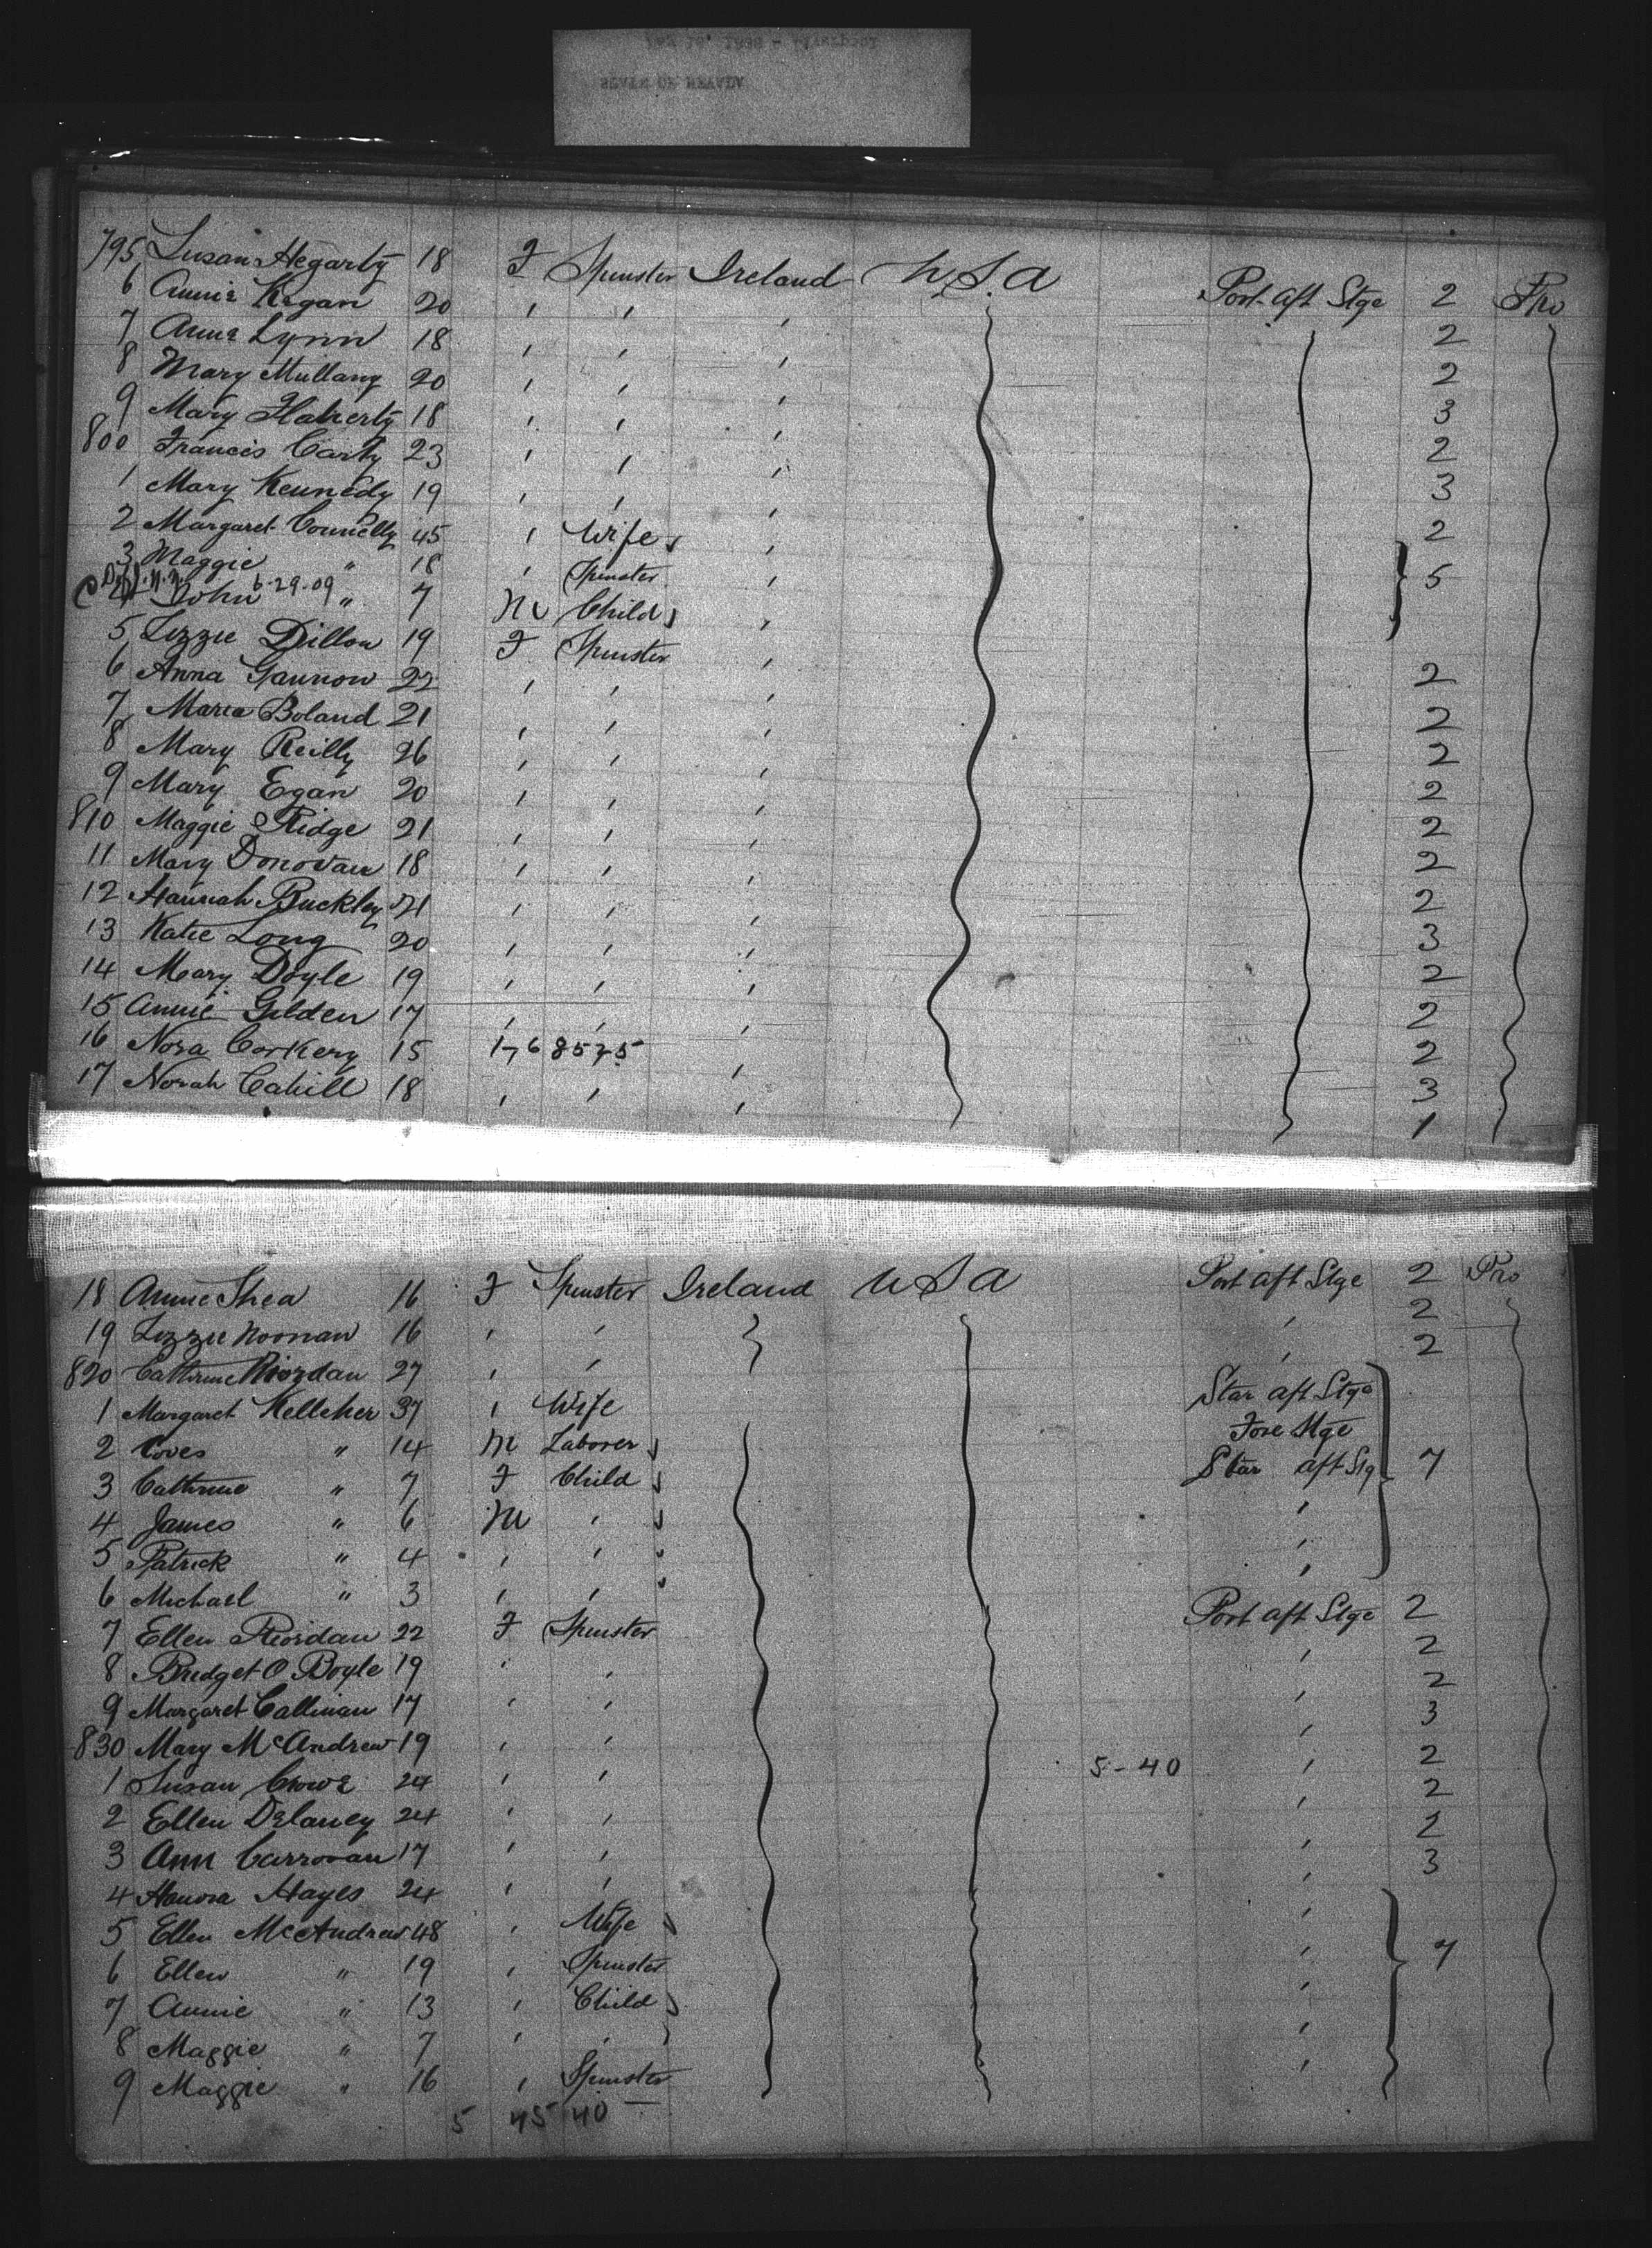 795 Susan Hegarty 18 F Spinster Ireland U.S.A Port aft Stge 2 Pro
6 Annie Kegan 20 " " " 2
7 Anne Lynn 18 " " " 2
8 Mary Mullany 20 " " " 3
9 Mary Flaherty 18 " " " 2
800 Francis Carty 23 " " " 3
1 Mary Kennedy 19 " " " 2
2 Margaret Connelly 45 " Wife "
3 Maggie " 18 " Spinster " 5
6-29-09
John " 7 M Child "
5 Lizzie Dillon 19 F Spinster " 2
6 Anna Gannon 22 " " " 2
7 Maria Boland 21 " " " 2
8 Mary Reilly 26 " " " 2
9 Mary Egan 20 " " " 2
810 Maggie Ridge 21 " " " 2
11 Mary Donovan 18 " " " 2
12 Hannah Buckley 21 " " " 3
13 Katie Long 20 " " " 2
14 Mary Doyle 19 " " " 2
15 Annie Gilden 17 " " " 2
16 Nora Corkery 15 " 3
17 Norah Cahill 18 " " " 1
18 Annie Shea 16 F Spinster Ireland U S A Port aft Stge 2 Pro
19 Lizzie Noonan 16 " " " 2
820 Catherine Riordan 27 " " " 2
1 Margaret Kelleher 37 " Wife Star aft Stge
2 " 14 M Laborer Fore Stge
3 Catherine " 7 F Child Star aft Stg 7
4 James " 6 M " "
5 Patrick " 4 " " "
6 Michael " 3 " " "
7 Ellen Riordan 22 F Spinster Port aft Stge 2
8 Bridget O Boyle 19 " " " 2
9 Margaret Callinan 17 " " " 2
830 Mary McAndrew 19 " " " 3
1 Susan Crowe 24 " " 5-40 " 2
2 Ellen Delaney 24 " " " 2
3 Ann 17 " " " 2
4 Honora Hayes 24 " " " 3
5 Ellen McAndrew 48 " Wife "
6 Ellen " 19 " Spinster " 7
7 Annie " 13 " Child "
8 Maggie " 7 " " "
9 Maggie " 16 " Spinster "
5 45 40